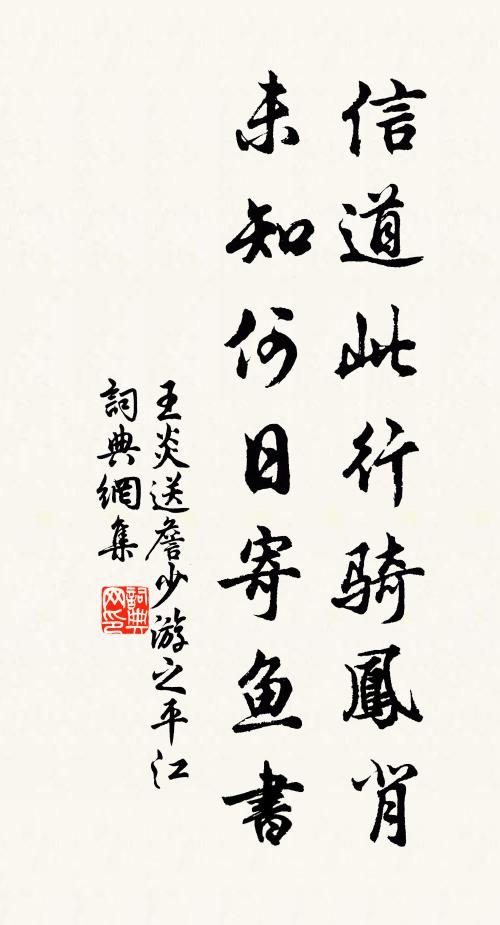 信道此行骑鳳肖
未知何日寄鱼書
王炎送詹少游之平江
詞典網集
詞典
网印